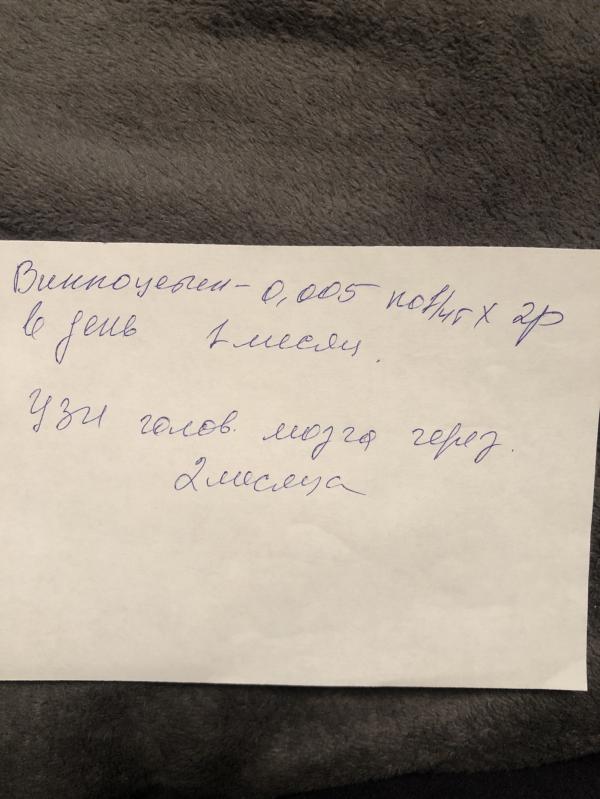 Винпоцетин - 0,005 по 1/4т х 2р
в день 1 месяц.
УЗИ голов. мозга через.
2 месяца